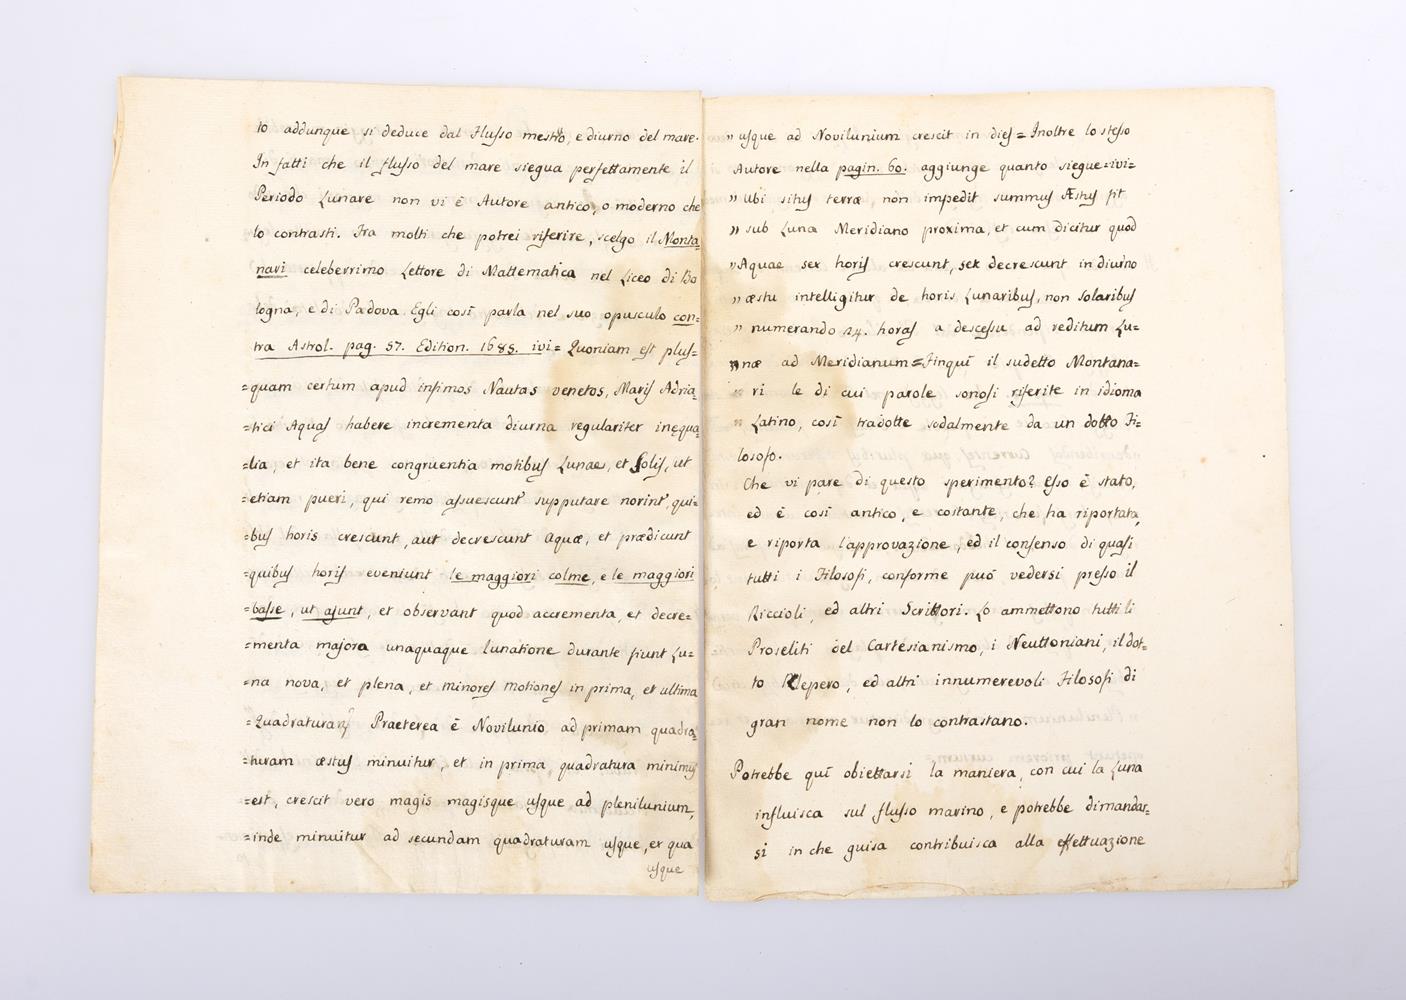 to addunque si deduce dal Flusso mestro, e diurno del mare.
In fatti che il flusso del mare siegua perfettamente il
Periodo Lunare non vi è Autore antico, o moderno che
lo contrasti. Fra molti che potrei riferire, scelgo il Monta-
nari celeberrimo Lettore di Mattematica nel Liceo di Bo
logna, e di Padova. Egli così parla nel suo opusculo con-
tra Astrol. pag. 57. Edition. 1685. ivi = Quoniam est plus-
=quam certum apud infimos Nautas venetos, Maris Adria
=tici Aquas habere incrementa diurna regulariter inęqua
=lia, et ita bene congruentia motibus Lunae, et Solis, ut
=etiam pueri, qui remo assuescunt supputare norint, qui-
=bus horis crescunt, aut decrescunt aquæ, et prædicunt
=quibus horis eveniunt le maggiori colme, e le maggiori
=basse, ut ajunt, et observant quod accrementa, et decre=
=menta majora unaquaque lunatione durante fiunt Lu=
=na nova, et plena, et minores motiones in prima, et ultima
=Quadraturarum Praeterea è Novilunio ad primam quadra
=turam æstus minuitur, et in prima quadratura minimus
=est, crescit vero magis magisque usque ad plenilunium,
=inde minuitur ad secundam quadraturam usque, et qua
usque
„ usque ad Novilunium crescit in dies = Inoltre lo stesso
Autore nella pagin. 60. aggiunge quanto siegue = ivi =
„ Ubi situs terræ, non impedit summus Æstus fit
„ sub Luna Meridiano proxima, et cum dicitur quod
„ Aquae sex horis crescunt, sex decrescunt in diurno
„ æstu intelligitur de horis Lunaribus, non solaribus
„ numerando 24. horas a descessu ad reditum Lu-
„ næ ad Meridianum = Finquì il sudetto Montana=
„ ri le di cui parole sonosi riferite in idioma
„ Latino, così tradotte sodalmente da un dotto Fi-
losofo.
Che vi pare di questo sperimento? Esso è stato,
ed è così antico, e costante, che ha riportata,
e riporta l'approvazione, ed il consenso di quasi
tutti i Filosofi, conforme può vedersi presso il
Riccioli, ed altri Scrittori. Lo ammettono tutti li
Proseliti del Cartesianismo, i Neuttoniani, il dot-
to Klepero, ed altri innumerevoli Filosofi di
gran nome non lo contrastano.
Potrebbe quì obiettarsi la maniera, con cui la Luna
influisca sul flusso marino, e potrebbe dimandar=
si in che guisa contribuisca alla effettuazione